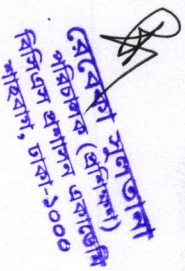 রেবেকা সুলতানা
পরিচালক (প্রশিক্ষণ)
বিসিএস প্রশাসন একাডেমি
শাহবাগ, ঢাকা-১০০০